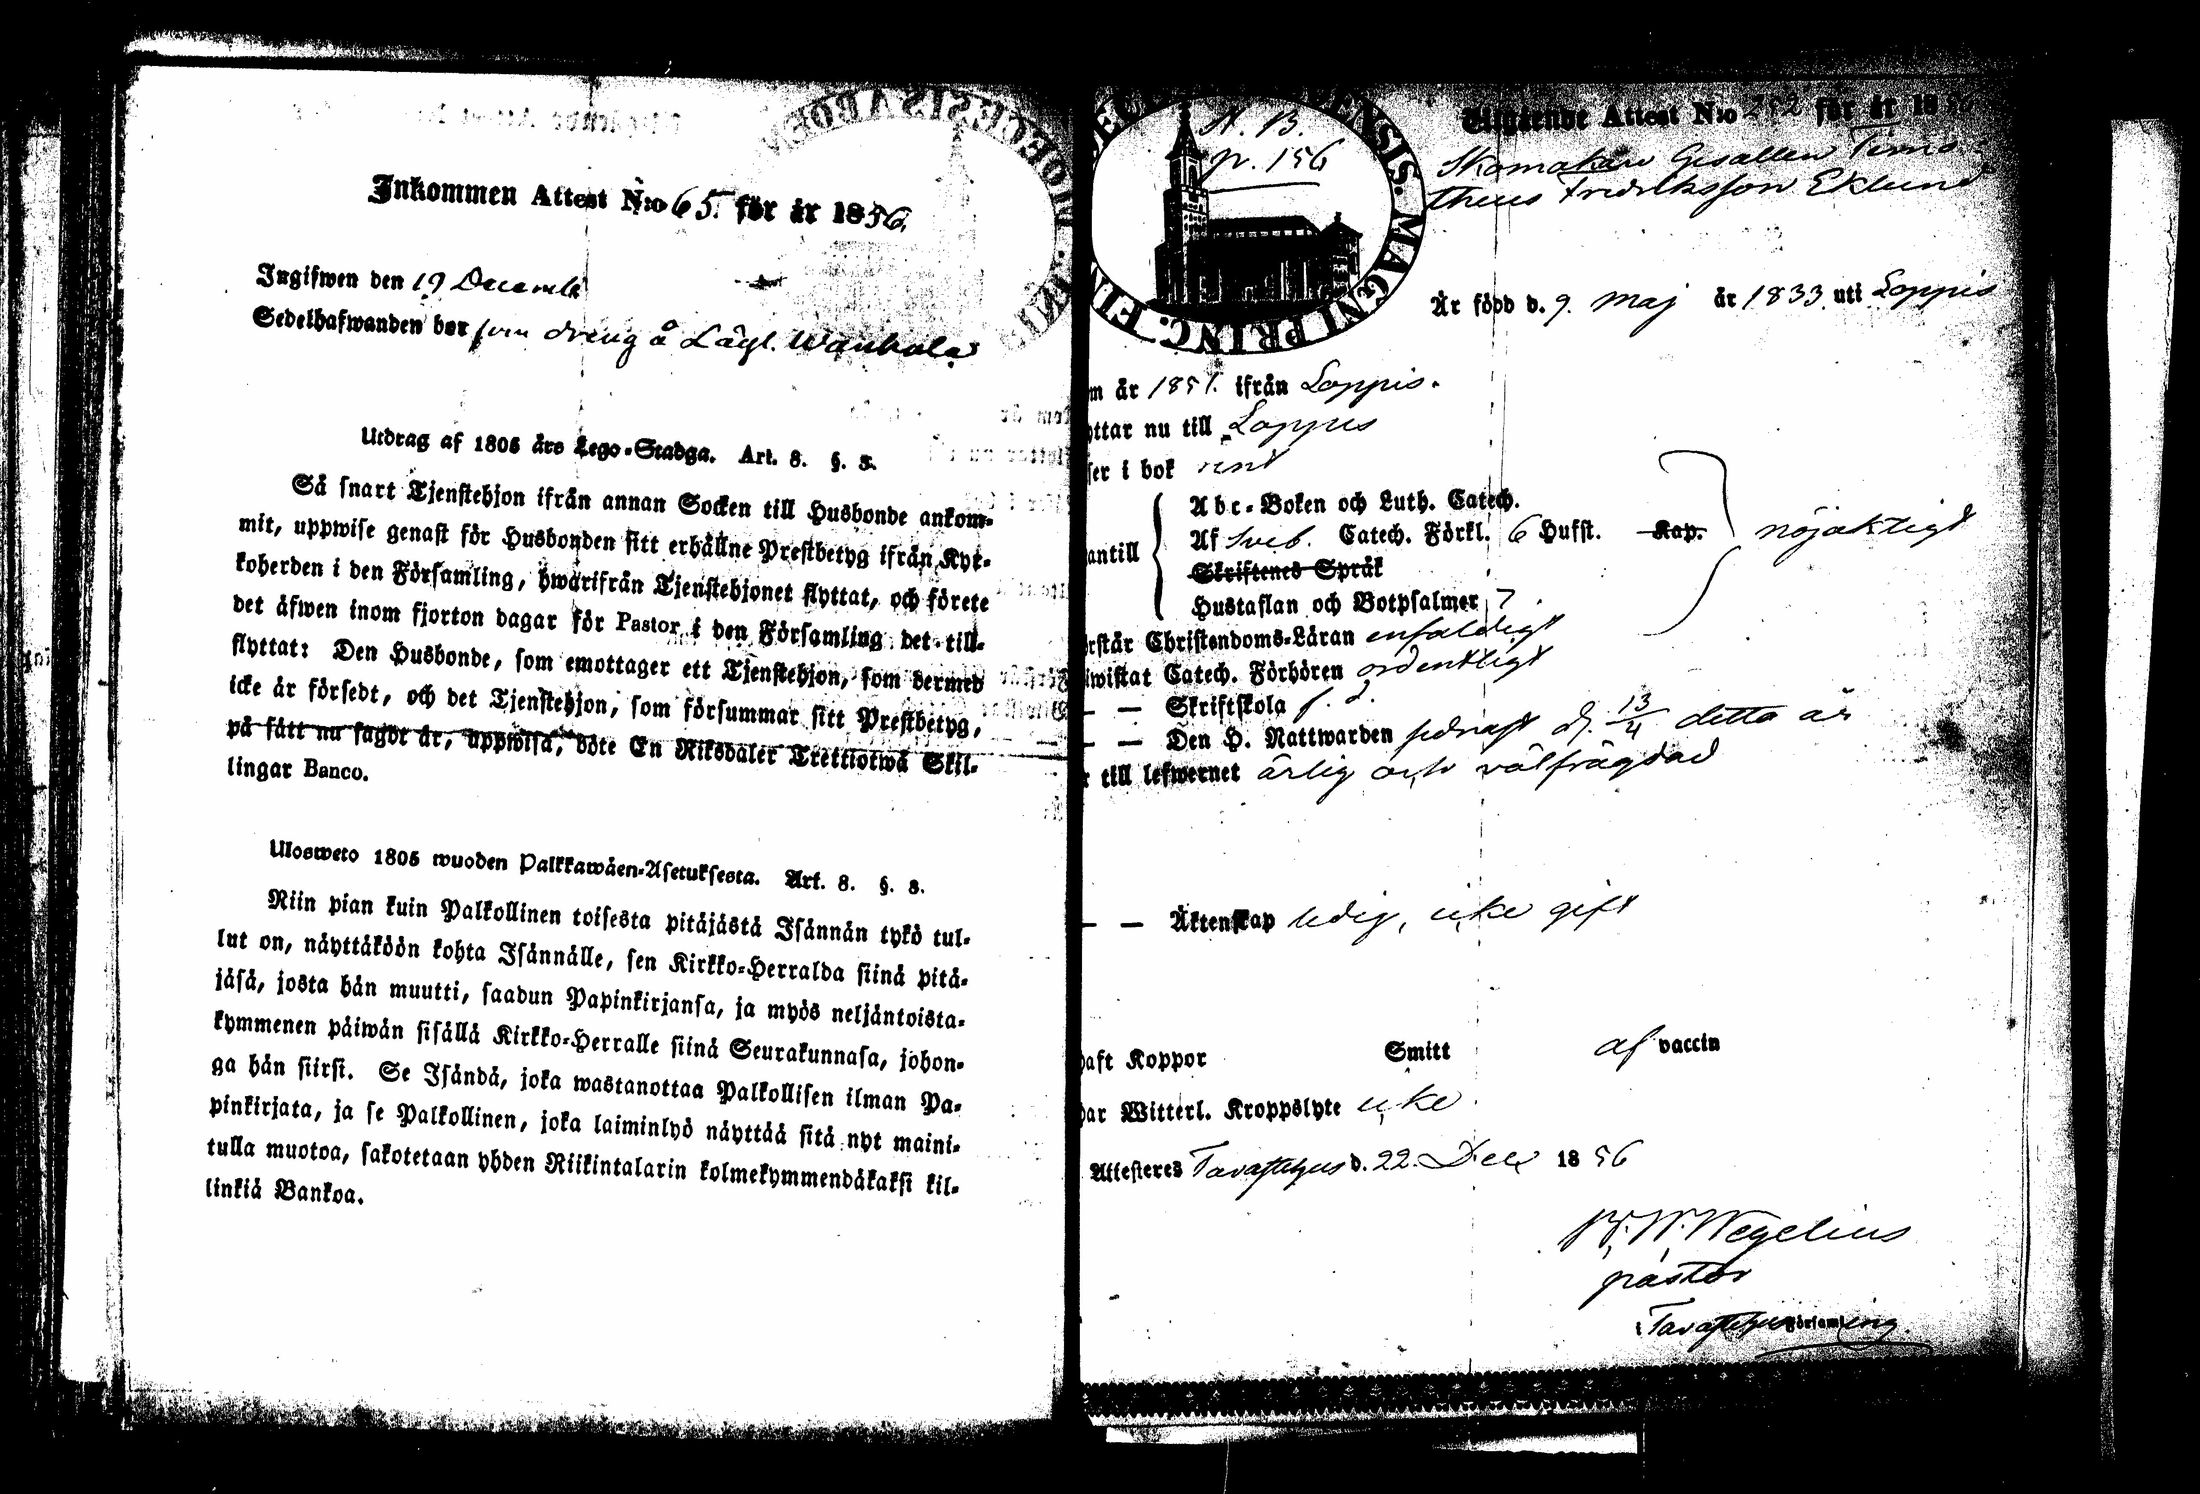 Inkommen Attest N:o 65. för år 1856.
Ingifwen den 19 Decemb
Sedelhafwanden bor som dreng å Lägl. Wanhala
Utdrag af 1805 års Lego-Stadga. Art. 8. §. 3.
Så snart Tjenstehjon ifrån annan Socken till Husbonde ankom-
mit, uppwise genast för Husbonden sitt erhållne Prestbetyg ifrån Kyr-
koherden i den Församling, hwarifrån Tjenstehjonet flyttat, och förete
det äfwen inom fjorton dagar för Pastor i den Församling det till-
flyttat: Den Husbonde, som emottager ett Tjenstehjon, som dermed
icke är försedt, och det Tjenstehjon, som försummar sitt Prestbetyg,
på sätt nu sagdt är, uppwisa, böte En Riksdaler Trettiotwå Skil-
lingar Banco.
Ulosweto 1805 wuoden Palkkawäen-Asetuksesta. Art. 8. §. 3.
Niin pian kuin Palkollinen toisesta pitäjästä Isännän tykö tul-
lut on, näyttäköön kohta Isännälle, sen Kirkko-Herralda siinä pitä-
jäsä, josta hän muutti, saadun Papinkirjansa, ja myös neljäntoista-
kymmenen päiwän sisällä Kirkko-Herralle siinä Seurakunnasa, johon-
ga hän siirsi. Se Isändä, joka wastanottaa Palkollisen ilman Pa-
pinkirjata, ja se Palkollinen, joka laiminlyö näyttää sitä nyt maini-
tulla muotoa, sakotetaan yhden Riikintalarin kolmekymmendäkaksi kil-
linkiä Bankoa.
N. B.
p. 156
ENSIS. MAGNI PRINC. FIN
Utgående Attest N:o 252 för år 1856
Skomakare Gesällen Timo-
theus Fredriksson Eklund
Är född d. 9. Maj år 1833 uti Loppis
m år 1851. ifrån Loppis.
yttar nu till Loppis
ser i bok rent
Abc-Boken och Luth. Catech.
antill Af Sveb. Catech. Förkl. 6 Hufst. Kap. nöjaktigt
Skriftenes Språk
Hustaflan och Botpsalmer 7.
rstår Christendoms-Läran enfaldigt
iwistat Catech. Förhören ordentligt
— — Skriftskola f. d.
— — Den H. Nattwarden sednast d. 13/4 detta år
r till lefwernet ärlig och välfrägdad
— — Äktenskap ledig, icke gift
haft Koppor Smitt af vaccin
har Witterl. Kroppslyte icke
Attesteres Tavastehus d. 22. Dec 1856
W. Wegelius
pastor
i Tavastehus Församling.